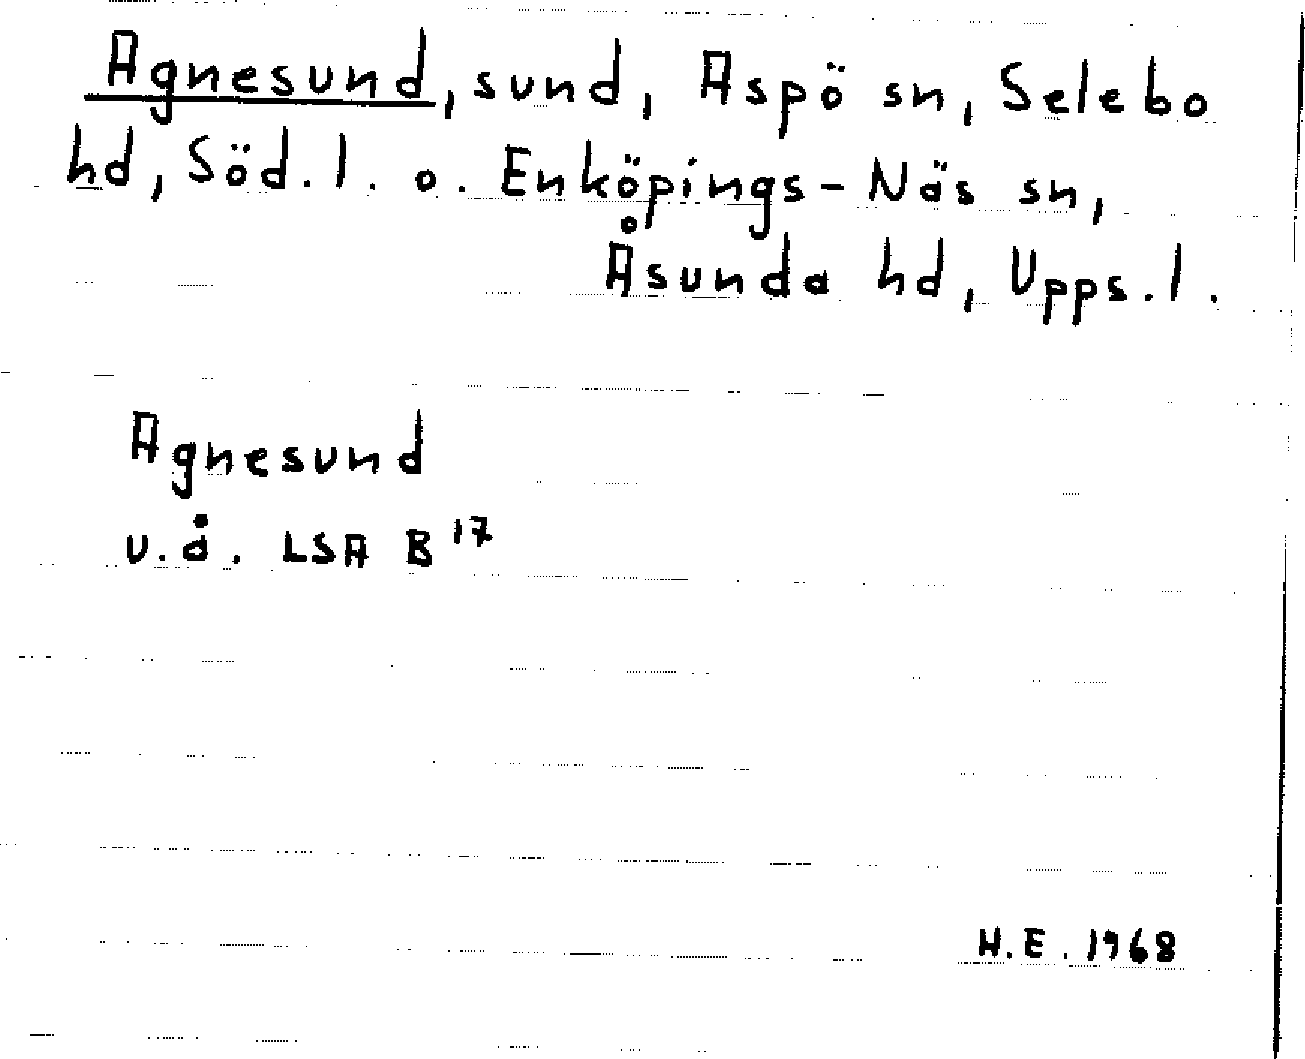 Agnesund, sund, Aspö sn, Selebo
hd, Söd.l. o. Enköpings-Näs sn,
Åsunda hd, Upps.l.
Agnesund
u.å. LSA B 17
H.E. 1968